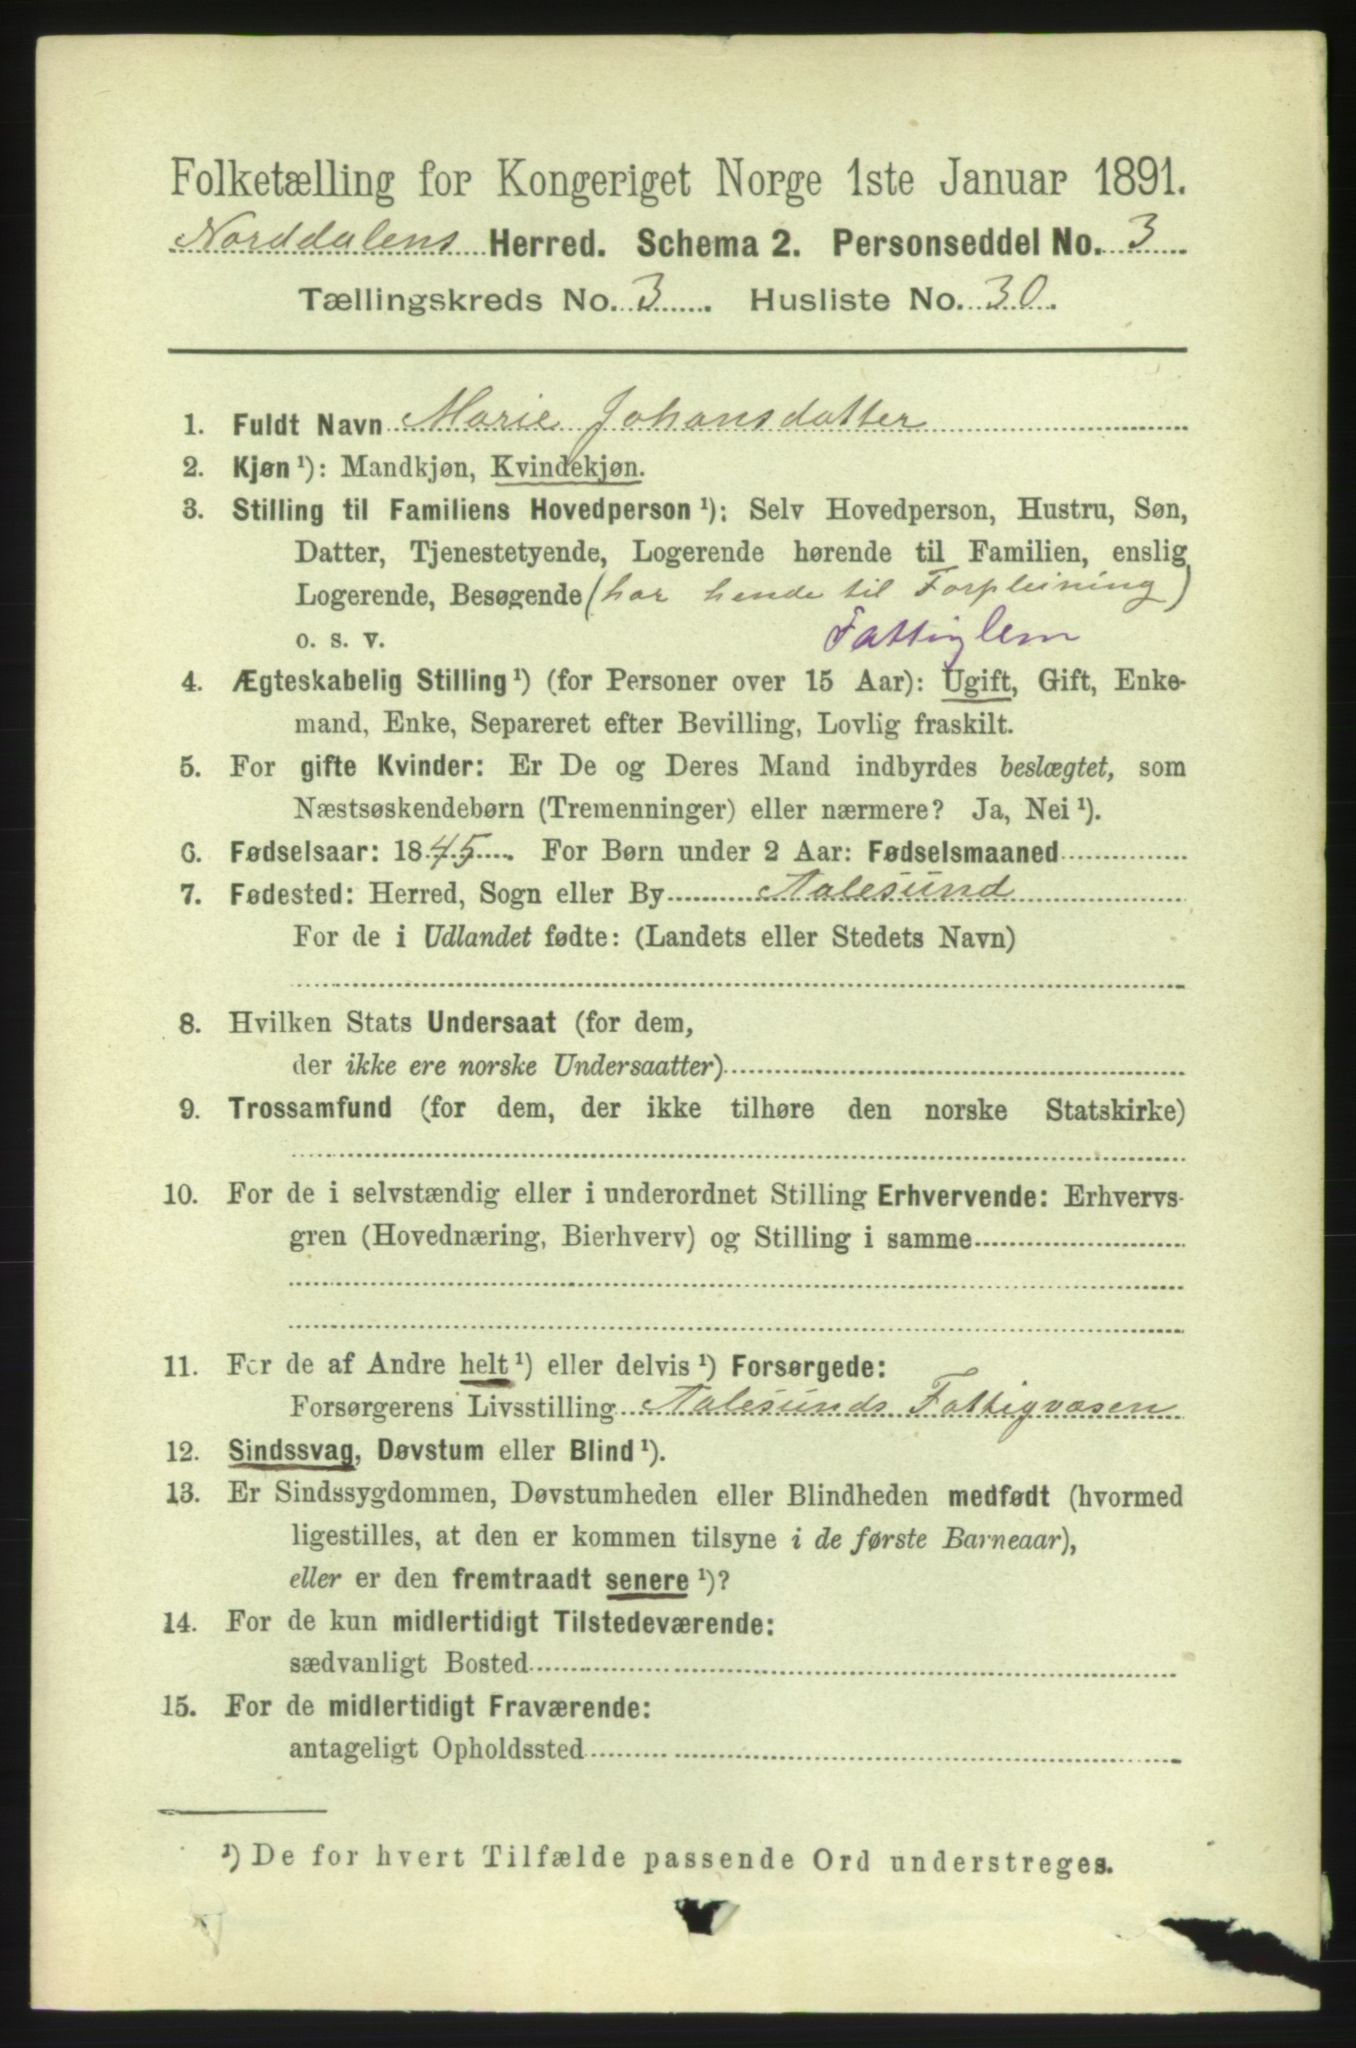 Folketælling for Kongeriget Norge 1ste Januar 1891.
Norddalens Herred. Schema 2. Personseddel No. 3
Tællingskreds No. 3. Husliste No. 30.
1. Fuldt Navn Marie Johansdatter
2. Kjøn ¹): Mandkjøn, Kvindekjøn.
3. Stilling til Familiens Hovedperson ¹): Selv Hovedperson, Hustru, Søn,
Datter, Tjenestetyende, Logerende hørende til Familien, enslig
Logerende, Besøgende (har hende til Forpleining)
o. s. v. Fattiglem
4. Ægteskabelig Stilling ¹) (for Personer over 15 Aar): Ugift, Gift, Enke-
mand, Enke, Separeret efter Bevilling, Lovlig fraskilt.
5. For gifte Kvinder: Er De og Deres Mand indbyrdes beslægtet, som
Næstsøskendebørn (Tremenninger) eller nærmere? Ja, Nei ¹).
6. Fødselsaar: 1845. For Børn under 2 Aar: Fødselsmaaned
7. Fødested: Herred, Sogn eller By Aalesund
For de i Udlandet fødte: (Landets eller Stedets Navn)
8. Hvilken Stats Undersaat (for dem,
der ikke ere norske Undersaatter)
9. Trossamfund (for dem, der ikke tilhøre den norske Statskirke)
10. For de i selvstændig eller i underordnet Stilling Erhvervende: Erhvervs-
gren (Hovednæring, Bierhverv) og Stilling i samme
11. For de af Andre helt ¹) eller delvis ¹) Forsørgede:
Forsørgerens Livsstilling Aalesunds Fattigvæsen
12. Sindssvag, Døvstum eller Blind ¹).
13. Er Sindssygdommen, Døvstumheden eller Blindheden medfødt (hvormed
ligestilles, at den er kommen tilsyne i de første Barneaar),
eller er den fremtraadt senere ¹)?
14. For de kun midlertidigt Tilstedeværende:
sædvanligt Bosted
15. For de midlertidigt Fraværende:
antageligt Opholdssted
¹) De for hvert Tilfælde passende Ord understreges.